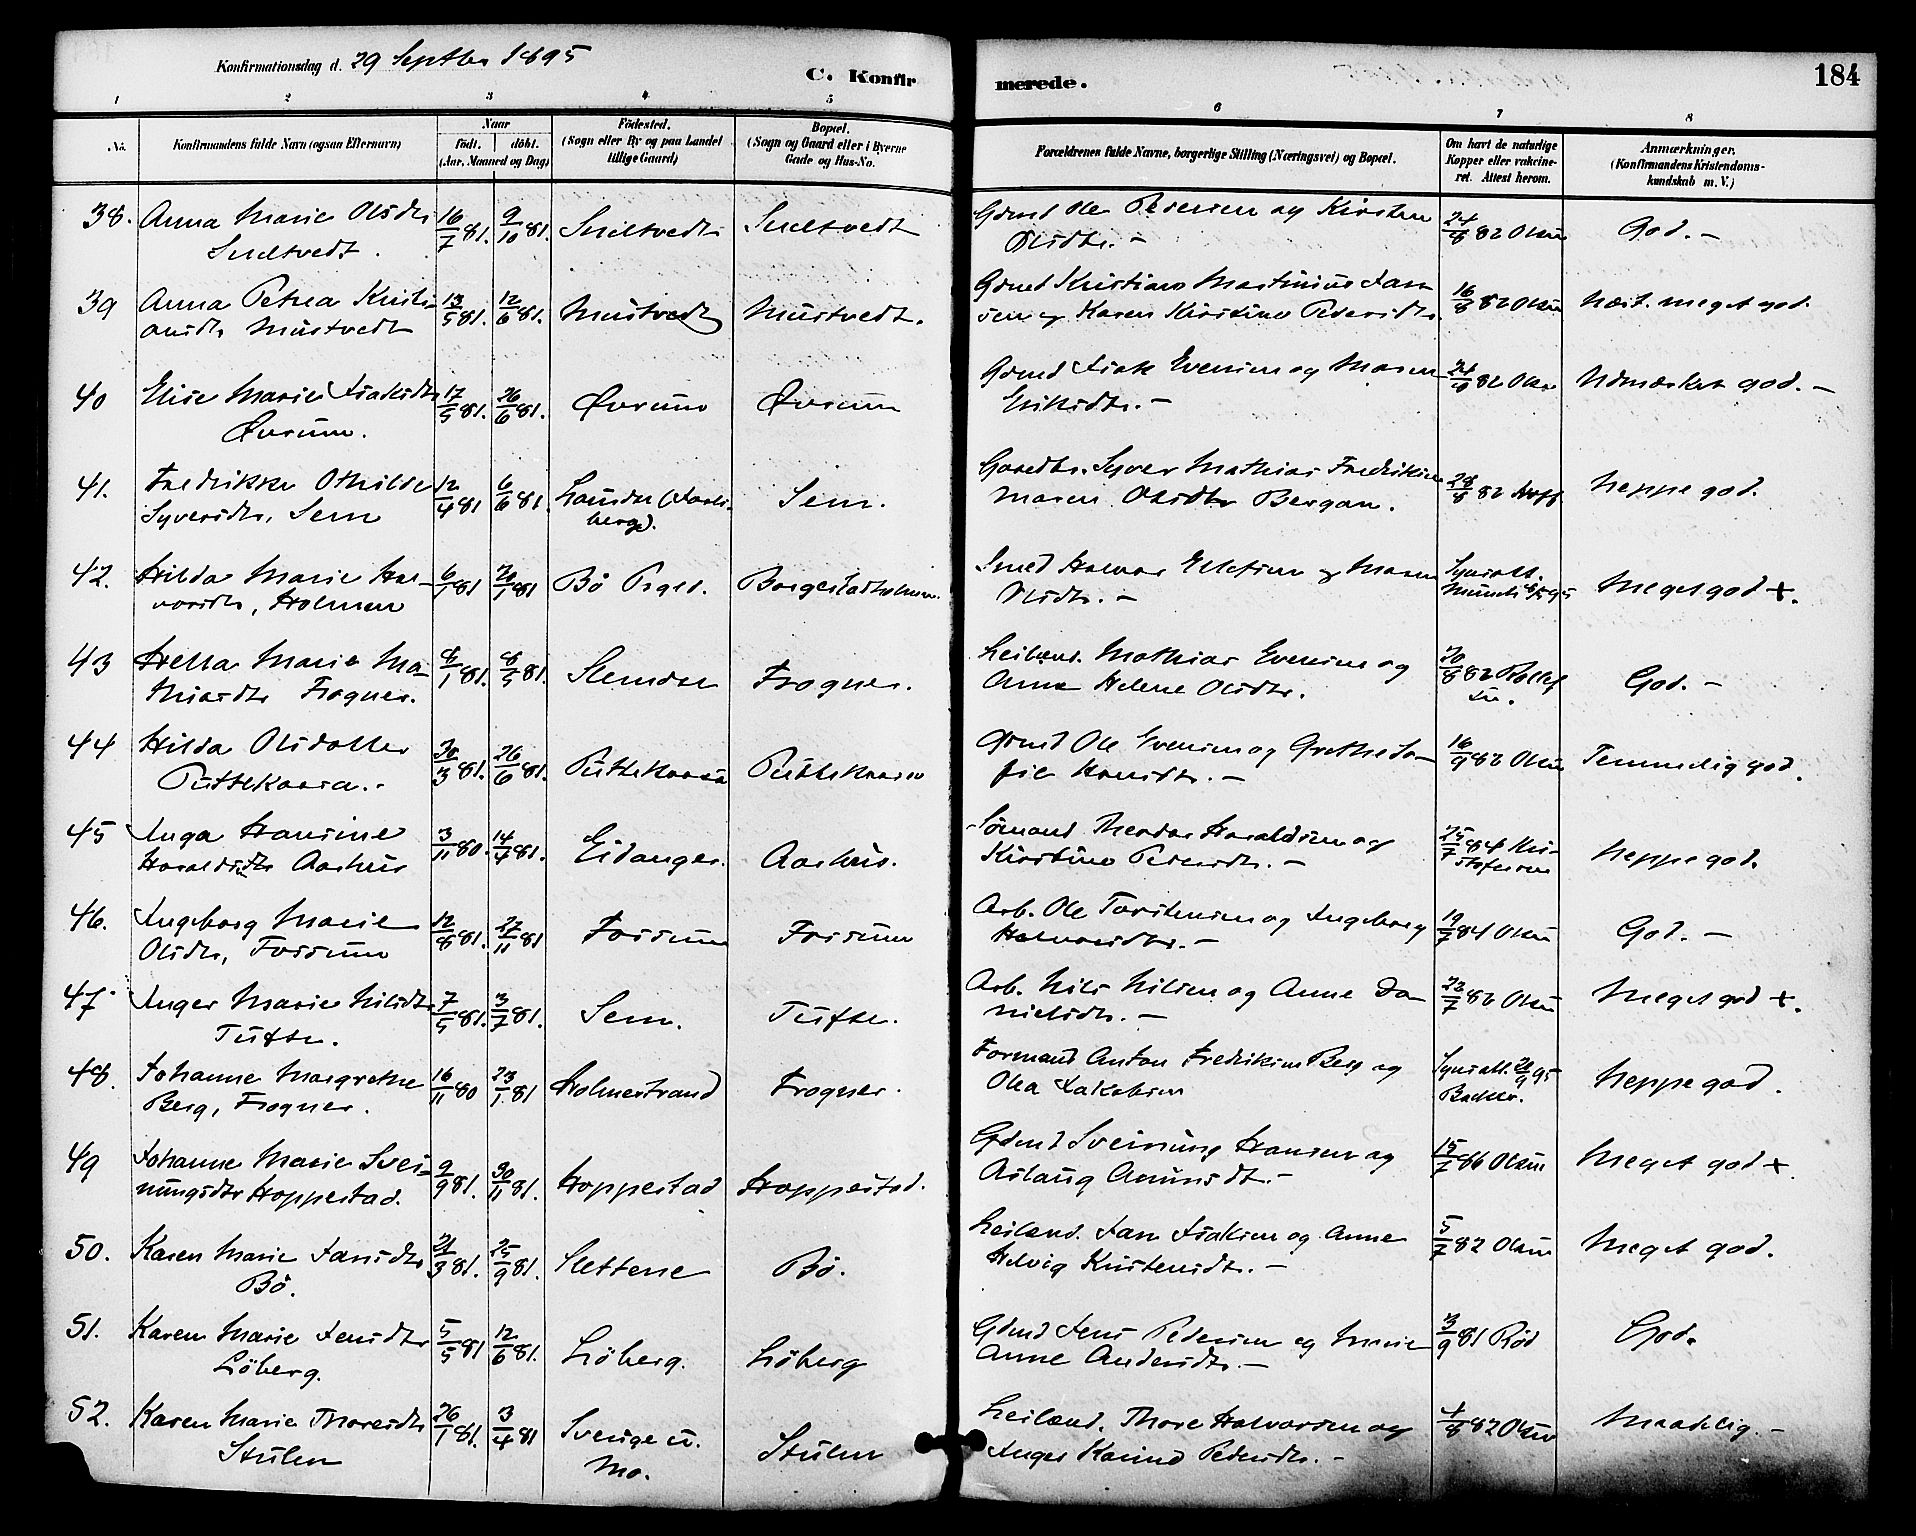 Konfirmationsdag d. 29 Septbr 1895
C. Konfir
merede.
184
1 2 3 4 5 6 7 8
No.
Konfirmandens fulde Navn (ogsaa Efternavn)
Naar
født. døbt.
(Aar, Maaned og Dag)
Fødested.
(Sogn eller By og paa Landet
tillige Gaard)
Bopæl.
(Sogn og Gaard eller i Byerne
Gade og Hus-No.
Forældrenes fulde Navne, borgerlige Stilling (Næringsvei) og Bopæl.
Om havt de naturlige
Kopper eller vakcine-
ret. Attest herom.
Anmærkninger.
(Konfirmandens Kristendoms-
kundskab m. V.)
38. Anna Marie Olsdtr 16/7 81. 9/10 81. Sneltvedt Sneltvedt Gdmd Ole Pedersen og Kirsten 24/8 82 Olsen God. –
Sneltvedt. Olsdtr. –
39 Anna Petrea Kristi- 13/5 81. 12/6 81. Mustvedt Mustvedt. Gdmd Kristian Martinius Jan 16/8 82 Olsen Næst. meget god.
ansdtr Mustvedt sen og Karen Kirstine Pedersdtr.
40 Elise Marie Isaksdtr 17/5 81. 26/6 81. Øvrum Øvrum Gdmd Isak Evensen og Maren 82 Olsen Udmærket god. –
Øvrum. Eriksdtr. –
41. Fredrikke Othilde 12/4 81 6/6 81. Sem. Gaardbr. Syver Mathias Fredriksen 28/8 82 Hoff Neppe god.
Syversdtr, Sem berg). Maren Olsdtr Bergan.
42. Hilda Marie Hal- 6/1 81 81 Bø Prgld. Borgestadholmen. Smed Halvor Ellefsen og Maren Synsatt. Meget god +.
vorsdtr, Holmen Olsdtr. – Munch 95
43 Hella Marie Ma- 8/1 81. 8/5 81. Slemdal Frogner. Leilænd. Mathias Evensen og 20/8 82 God. –
thiasdtr Frogner. Anne Helene Olsdtr.
44 Hilda Olsdatter 30/3 81. 26/6 81. Puttekaasa Puttekaasa Gdmd Ole Evensen og Grethe So- 16/9 82 Olsen Temmelig god.
Puttekaasa. – fie Hansdtr. –
45 Inga Hansine 3/11 80. 14/4 81. Eidanger. Aarhus. Sømand Theodor Haraldsen og 25/7 84 Kri- Neppe god.
Haraldsdtr Aarhus Kirstine Pedersdtr. – stofersen
46. Ingeborg Marie 12/8 81. 27/11 81 Fossum Fossum Arb. Ole Torstensen og Ingeborg 19/7 84 Olsen God. –
Olsdtr, Fossum Halvorsdtr. –
47. Inger Marie Nilsdtr 7/5 81. 3/7 81. Sem. Tufte. Arb. Nils Nilsen og Anne Da- 22/7 82 Olsen Meget god +.
Tufte. nielsdtr. –
48. Johanne Margrethe 16/11 80 23/1 81 Holmestrand Frogner. Formand Anton Fredriksen Berg og Synsatt. 95 Neppe god.
Berg, Frogner. Olea Jakobsen Backer.
49 Johanne Marie Svei- 9/9 81. 30/11 81. Hoppestad Hoppestad. Gdmd Sveinung Hansen og 15/7 86 Olsen Meget god +.
nungsdtr Hoppestad. Aslaug Amundsdt. –
50. Karen Marie Jansdtr 21/3 81. 25/9 81. Slettene Bø. Leilænd. Jan Isaksen og Anne 5/7 82 Olsen Meget god.
Bø. Helvig Kristensdtr. –
51. Karen Marie Jensdtr 5/5 81 12/6 81. Løberg. Løberg Gdmd Jens Pedersen og Maren 3/9 81 Rød God.
Løberg. Anne Andersdtr. –
52. Karen Marie Thoresdtr 26/1 81. 3/4 81 Sverige u. Stulen Leilænd. Thore Halvorsen og 4/8 82 Olsen Maadelig. –
Stulen Mo. Inger Karine Pedersdtr. –